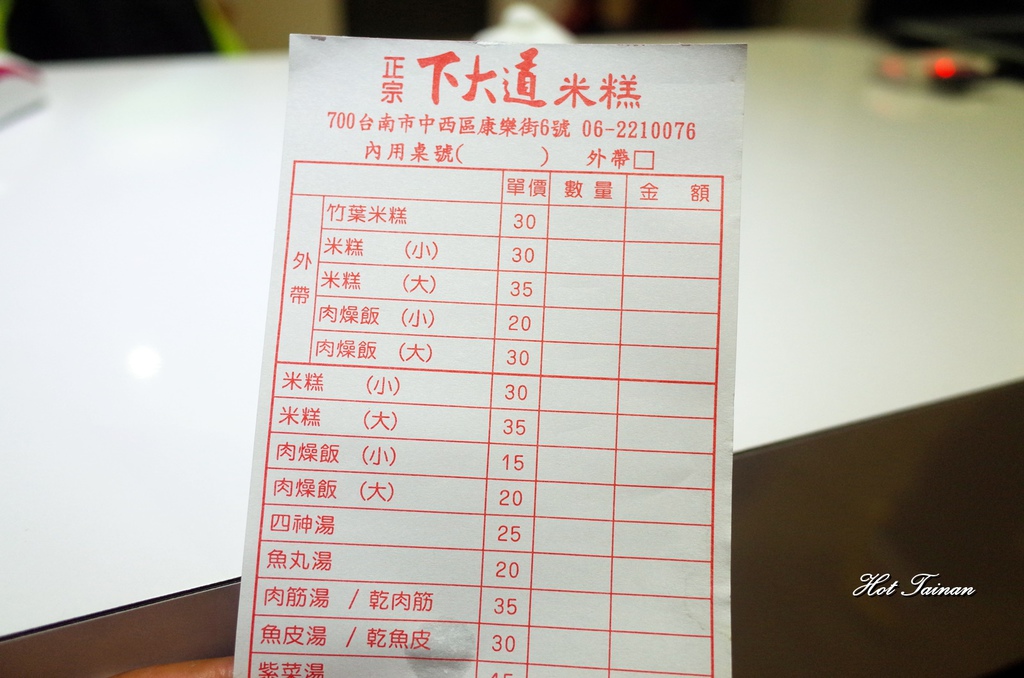 正宗 下大道 米糕
700台南市中西區康樂街6號 06-2210076
內用桌號( ) 外帶□
單價 數量 金額
外帶
竹葉米糕 30
米糕 (小) 30
米糕 (大) 35
肉燥飯 (小) 20
肉燥飯 (大) 30
米糕 (小) 30
米糕 (大) 35
肉燥飯 (小) 15
肉燥飯 (大) 20
四神湯 25
魚丸湯 20
肉筋湯 / 乾肉筋 35
魚皮湯 / 乾魚皮 30
紫菜湯
Hot Tainan